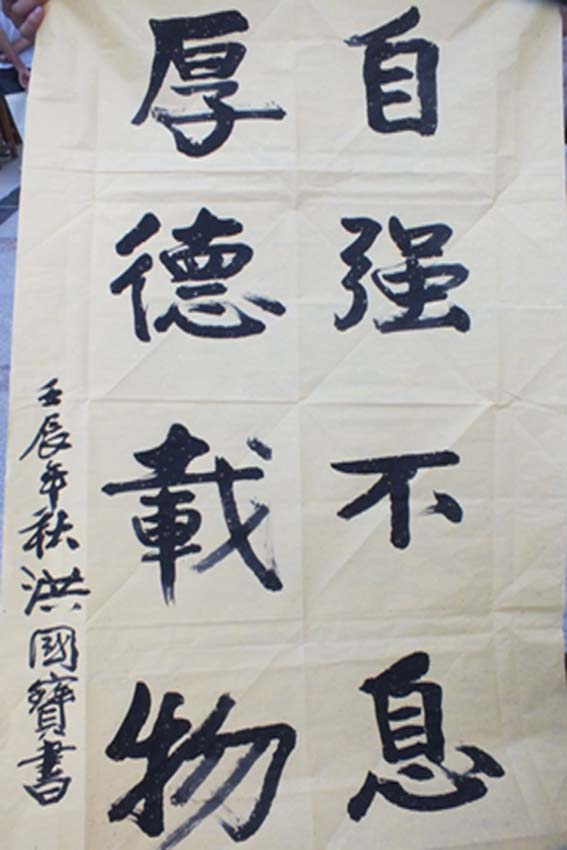 自强不息
厚德載物
壬辰年秋洪國寶書